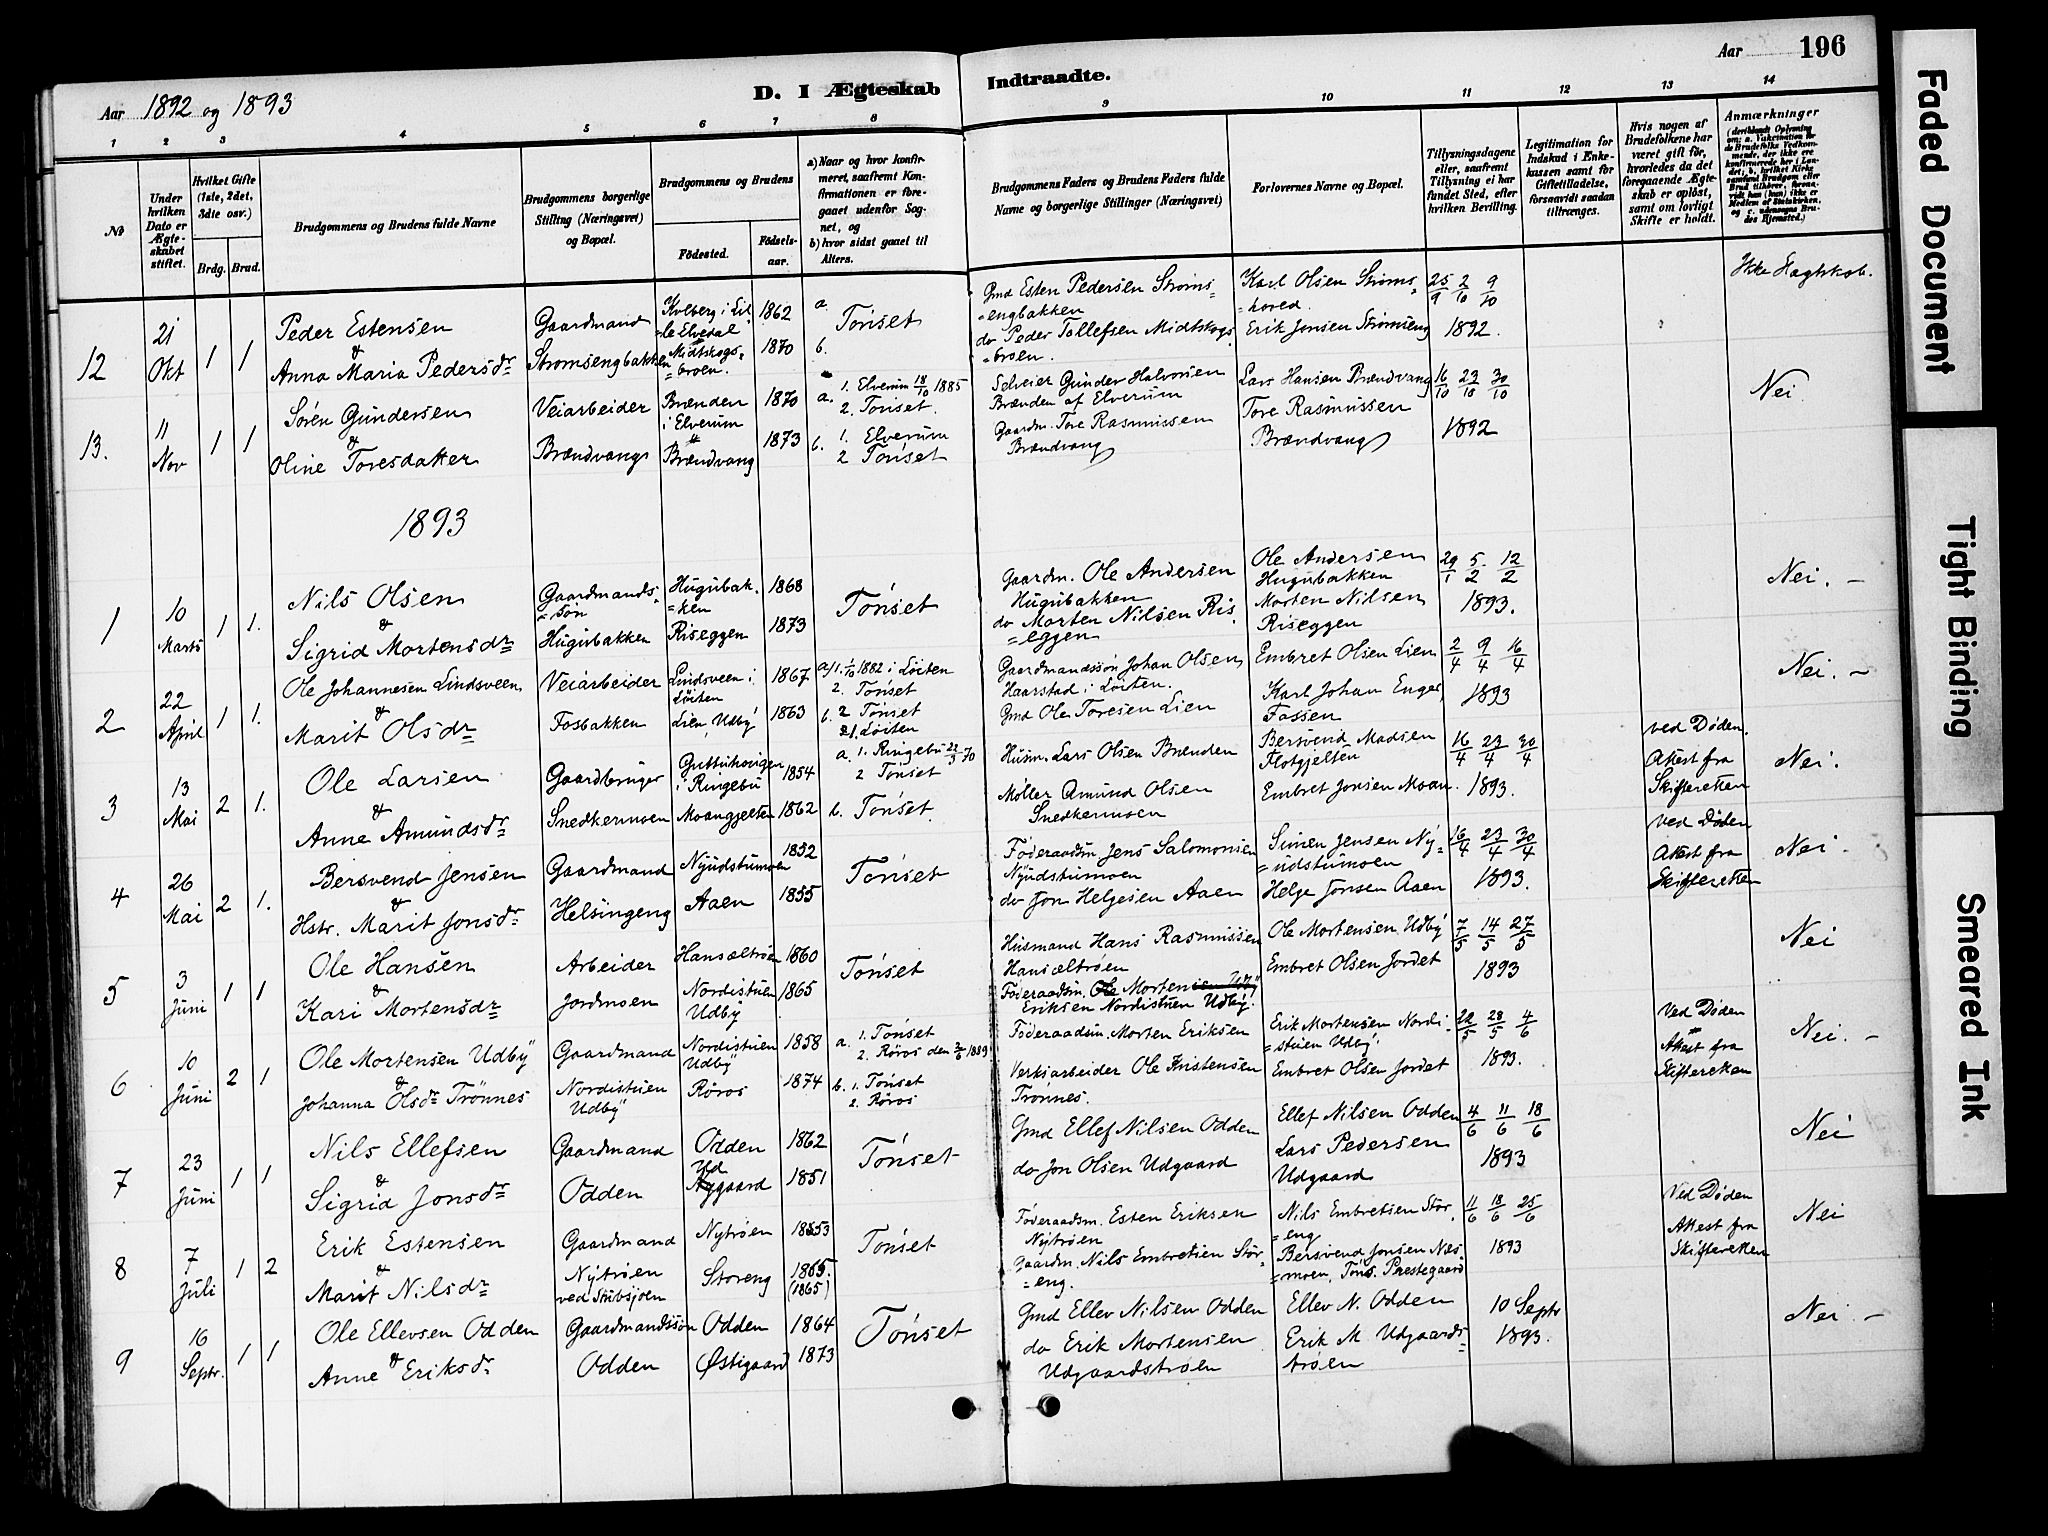 Aar 1892 og 1893
D. I Ægteskab Indtraadte.
Aar 196
1 2 3 4 5 6 7 8 9 10 11 12 13 14
No
Under hvilken Dato er Ægteskabet stiftet.
Hvilket Gifte (1ste, 2det, 3dte osv.)
Brdg. Brud.
Brudgommens og Brudens fulde Navne
Brudgommens borgerlige Stilling (Næringsvei) og Bopæl.
Brudgommens og Brudens
Fødested.
Fødselsaar.
a) Naar og hvor konfirmeret, saafremt Konfirmationen er foregaaet udenfor Sognet, og
b) hvor sidst gaaet til Alters.
Brudgommens Faders og Brudens Faders fulde Navne og borgerlige Stillinger (Næringsvei)
Forlovernes Navne og Bopæl.
Tillysningsdagene eller, saafremt Tillysning ei har fundet Sted, efter hvilken Bevilling.
Legitimation for Indskud i Enkekassen samt for Giftetilladelse, forsaavidt saadan tiltrænges.
Hvis nogen af Brudefolkene har været gift før, hvorledes da det foregaaende Ægteskab er opløst, samt om lovligt Skifte er holdt.
Anmærkninger
12
21 Okt
1 1
Peder Estensen
&
Anna Maria Pedersdr
Gaardmand
Strømsengbakken
Kolberg i Lille Elvedal
Midtskogsbroen.
1862
1870
a
b.
Tønset
Gmd Esten Pedersen Strøms=
=engbakken
do Peder Tollefsen Midtskogs
=broen.
Karl Olsen Strøms=
=hoved.
Erik Jonsen Strømseng
25/9 2/10 9/10
1892.
Ikke Slægtskab.
13.
11 Nov
1 1
Søren Gundersen
&
Oline Toresdatter
Veiarbeider
Brændvang
Brænden i Elverum
Brændvang
1870
1873
a. 1. Elverum 18/10 1885
2. Tønset.
b. 1. Elverum
2 Tønset
Selveier Gunder Halvorsen
Brænden af Elverum
Gaardm. Tore Rasmussen
Brændvang
Lars Hansen Brændvang
Tore Rasmussen
Brændvang
16/10 23/10 30/10
1892
Nei.
1893
1
10 Marts
1 1.
Nils Olsen
&
Sigrid Mortensdr
Gaardmands=
=søn
Hugubakken
Hugubak=
=ken
Riseggen
1868
1873
Tønset
Gaardm. Ole Andersen
Hugubakken
do Morten Nilsen Ris=
=eggen
Ole Andersen
Hugubakken
Morten Nilsen
Riseggen
29/1 5/2 12/2
1893.
Nei. –
2
22 April
1 1.
Ole Johannesen Lindsveen
&
Marit Olsdr
Veiarbeider
Fosbakken
Lindsveen i Løiten
Lien, Udby
1867
1863
a) 1. 1/10 1882 i Løiten
2. Tønset
b. 2 Tønset
1. Løiten
Gaardmandssøn Johan Olsen
Haarstad i Løiten.
Gmd Ole Toresen Lien
Embret Olsen Lien
Karl Johan Enger
Fossen
2/4 9/4 16/4
1893
Nei. –
3
13 Mai
2 1.
Ole Larsen
&
Anne Amundsdr
Gaardbruger
Snedkermoen
i Ringebu
Moangjelten
1854
1862
a. 1. Ringebu
2 Tønset
b. Tønset.
Husm. Lars Olsen Brænden
Møller Amund Olsen
Snedkermoen
Bersvend Madsen
Flotgjelten
Embret Jonsen Moan.
16/4 23/4 30/4
1893.
ved Døden.
Attest fra
Skifteretten
Nei.
4
26 Mai
2 1.
Bersvend Jensen
&
Hstr. Marit Jonsdr
Gaardmand
Helsingeng
Nyudstumoen
Aaen
1852
1855
Tønset
Føderaadsm Jens Salomonsen
Nyudstumoen
do Jon Helgesen Aaen
Simen Jensen Ny=
=udstumoen
Helge Jonsen Aaen
16/4 23/4 30/4
1893.
ved Døden
Attest fra
Skifteretten
Nei.
5
3 Juni
1 1
Ole Hansen
&
Kari Mortensdr
Arbeider
Jordmoen
Hansæltrøen
Nordistuen
Udby
1860
1865
Tønset
Husmand Hans Rasmussen
Hansæltrøen
Føderaadsm. Ole Mortensen Udby
Eriksen Nordistuen Udby.
Ole Mortensen Udby
Embret Olsen Jordet
7/5 14/5 27/5
1893
Nei
6
10 Juni
2 1
Ole Mortensen Udby
&
Johanna Olsdr Trønnes
Gaardmand
Nordistuen
Udby
Nordistuen
Udby
Røros
1858
1874
a. 1. Tønset
2. Røros den 2/6 1889
b. 1. Tønset
2. Røros
Føderaadsm. Morten Eriksen
Verksarbeider Ole Kristensen
Trønnes.
Erik Mortensen Nordi=
=stuen Udby.
Embret Olsen Jordet
22/5 28/5 4/6
1893.
Ved Døden
Attest fra
Skifteretten
Nei. –
7
23 Juni
1 1
Nils Ellefsen
&
Sigrid Jonsdr
Gaardmand
Odden
Odden
Udgaard
1862
1851
Tønset
Gmd Ellef Nilsen Odden
do Jon Olsen Udgaard
Ellef Nilsen Odden
Lars Pedersen
Udgaard
4/6 11/6 18/6
1893
Nei
8
7 Juli
1 2
Erik Estensen
&
Marit Nilsdr
Gaardmand
Nytrøen
ved Stubsjøen
Nytrøen
Storeng
1853
1865.
(1865)
Tønset
Føderaadsm. Esten Eriksen
Nytrøen
Gaardm. Nils Embretsen Stor
=eng.
Nils Embretsen Stor
=eng
Bersvend Jonsen Næs
=moen, Tøns. Prestegaard
11/6 18/6 25/6
1893
Ved Døden
Attest fra
Skifteretten
Nei
9
16 Septr.
1 1
Ole Ellevsen Odden
&
Anne Eriksdr
Gaardmandssøn
Odden
Odden
Østigaard
1864
1873
Tønset
Gmd Ellev Nilsen Odden
do Erik Mortensen
Udgaardstrøen
Ellev N. Odden
Erik M. Udgaards=
trøen
10 Septr
1893.
Nei. –
Faded Document
Tight Binding
Smeared Ink